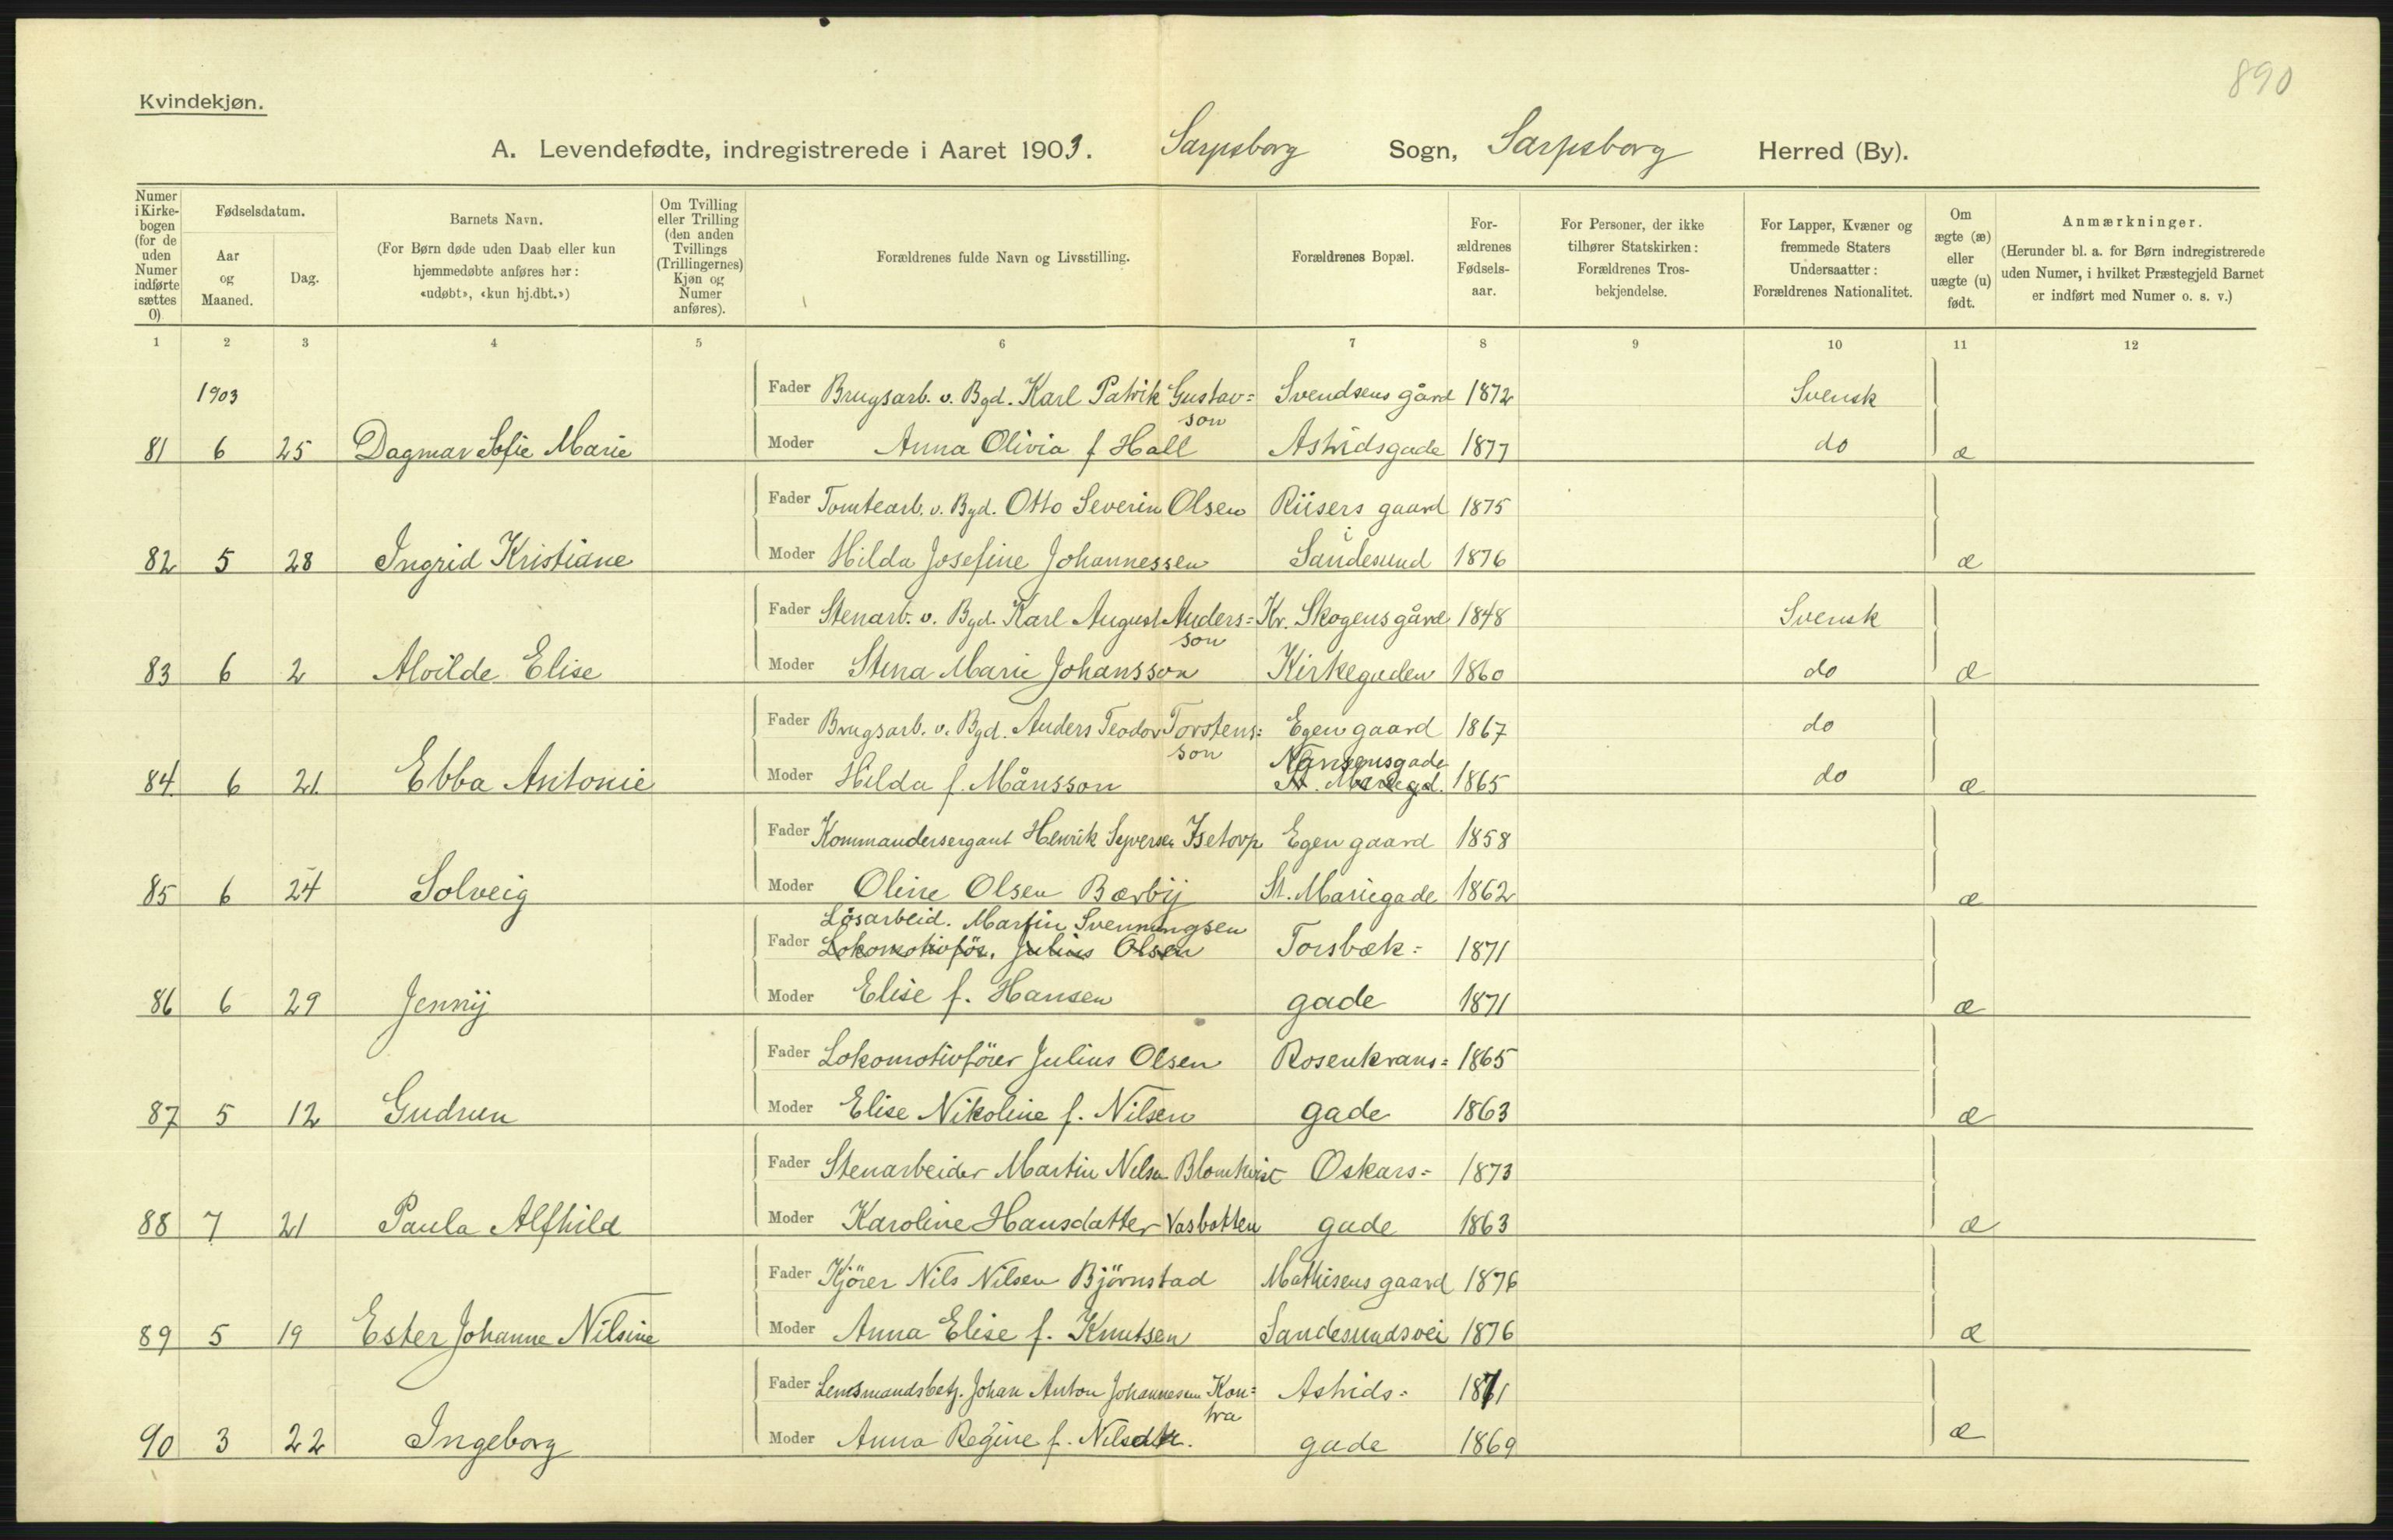 890
Kvindekjøn.
A. Levendefødte, indregistrerede i Aaret 1903. Sarpsborg Sogn, Sarpsborg Herred (By).
Numer i Kirkebogen (for de uden Numer indførte sættes 0)
Fødselsdatum.
Aar og Maaned.
Dag.
Barnets Navn.
(For Børn døde uden Daab eller kun hjemmedøbte anføres her: «udøbt», «kun hj.dbt.»)
Om Tvilling eller Trilling (den anden Tvillings (Trillingernes) Kjøn og Numer anføres).
Forældrenes fulde Navn og Livsstilling.
Forældrenes Bopæl.
For-ældrenes Fødsels-aar.
For Personer, der ikke tilhører Statskirken: Forældrenes Tros-bekjendelse.
For Lapper, Kvæner og fremmede Staters Undersaatter: Forældrenes Nationalitet.
Om ægte (æ) eller uægte (u) født.
Anmærkninger.
(Herunder bl. a. for Børn indregistrerede uden Numer, i hvilket Præstegjeld Barnet er indført med Numer o. s. v.)
1 2 3 4 5 6 7 8 9 10 11 12
1903 Fader Brugsarb. v. Bgd. Karl Patrik Gustav= Svendsens gård 1872 Svensk
son
81 6 25 Dagmar Sofie Marie Moder Anna Olivia f Hall Astridsgade 1877 do æ
Fader Tomtearb. v. Bgd. Otto Severin Olsen Riisers gaard 1875
82 5 28 Ingrid Kristiane Moder Hilda Josefine Johannessen Sandesund 1876 æ
Fader Stenarb. v. Bgd. Karl August Anders= Kr. Skogens gård 1848 Svensk
son
83 6 2 Alvilde Elise Moder Stina Marie Johansson Kirkegaden 1860 do æ
Fader Brugsarb. v. Bgd. Anders Teodor Torstens= Egen gaard 1867 do
son Nansensgade
84 6 21 Ebba Antonie Moder Hilda f. Månsson St. Mariegd. 1865 do æ
Fader Kommandersergant Henrik Syversen Isetorp Egen gaard 1858
85 6 24 Solveig Moder Oline Olsen Bærby St. Mariegade 1862 æ
Løsarbeid. Martin Svenningsen
Fader Lokomotivför. Julius Olsen Torsbæk= 1871
86 6 29 Jenny Moder Elise f. Hansen gade 1871 æ
Fader Lokomotivförer Julius Olsen Rosenkrans= 1865
87 5 12 Gudrun Moder Elise Nikoline f. Nilsen gade 1863 æ
Fader Stenarbeider Martin Nilsen Blomkvist Oskars= 1873
88 7 21 Paula Alfhild Moder Karoline Hansdatter Vasbotten gade 1863 æ
Fader Kjörer Nils Nilsen Björnstad Mathisens gaard 1876
89 5 19 Ester Johanne Nilsine Moder Anna Elise f. Knutsen Sandesundsvei 1876 æ
Fader Lensmandsbetj. Johan Anton Johannesen Kon= Astrids= 1871
tra
90 3 22 Ingeborg Moder Anna Regine f. Nilsdtr. gade 1869 æ